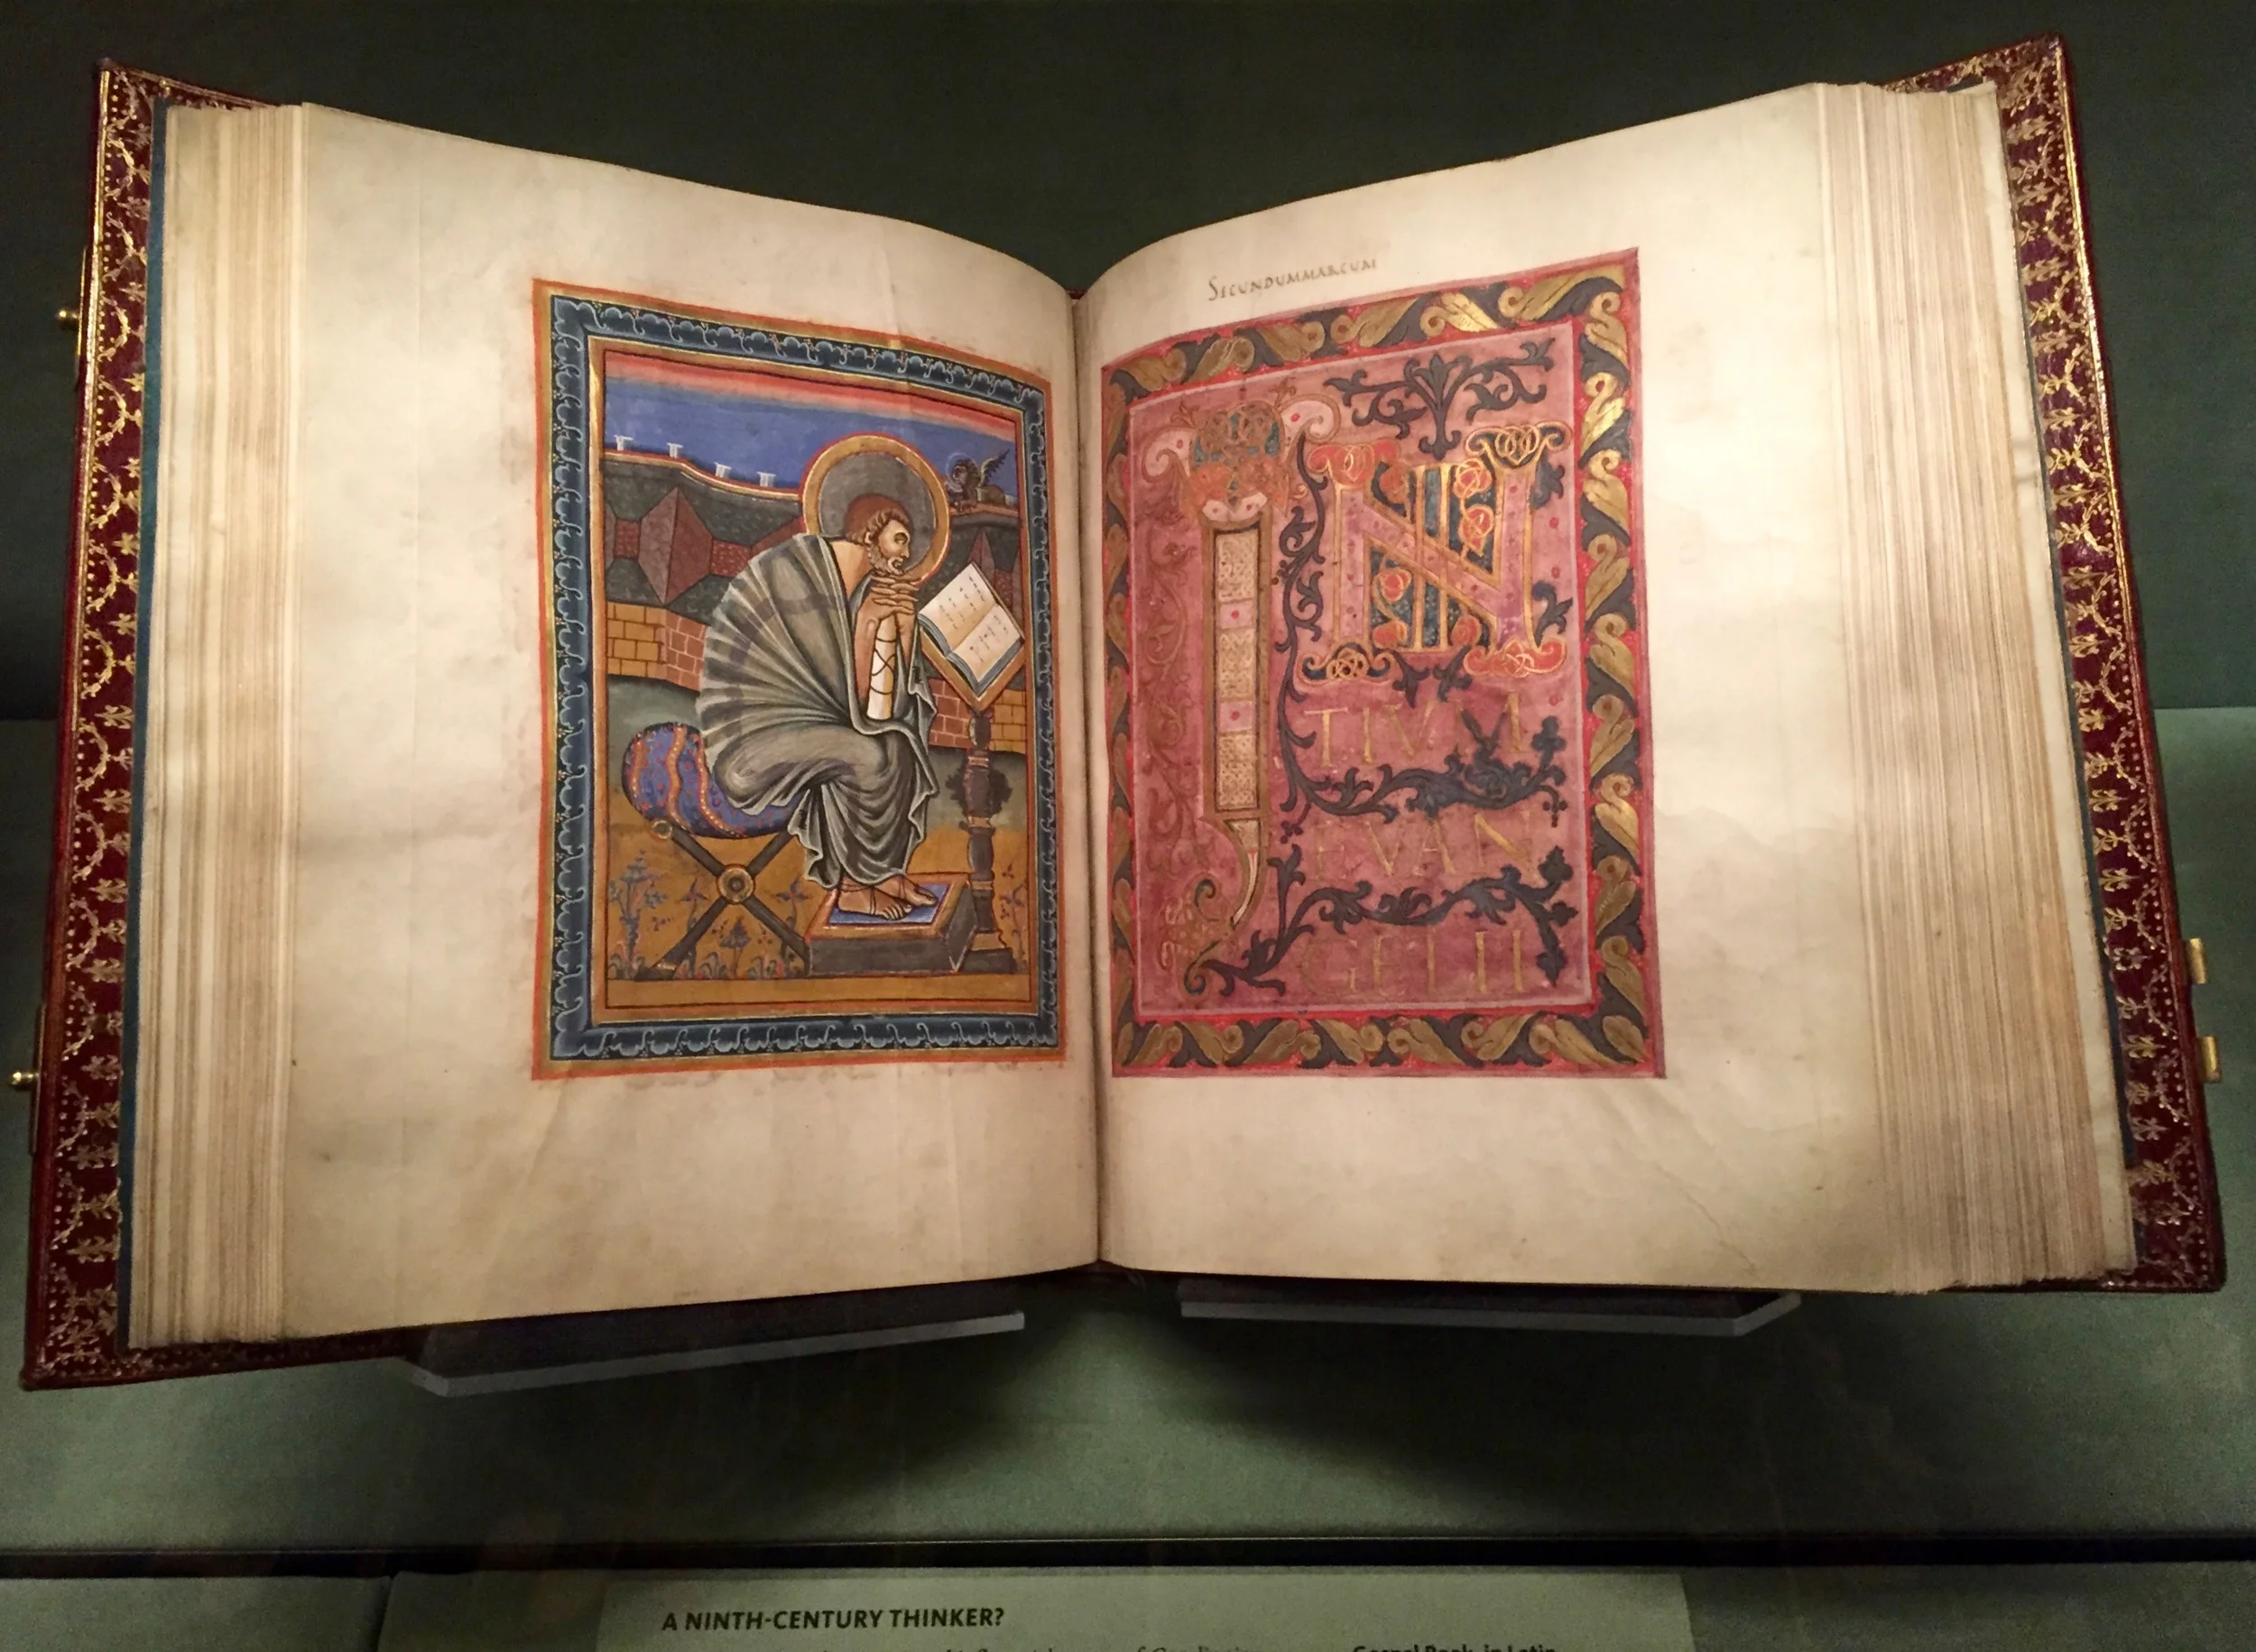 SECUNDUMMARCUM
IN
TIVM
EVAN
GELII
A NINTH-CENTURY THINKER?
Gospel Book, in Latin